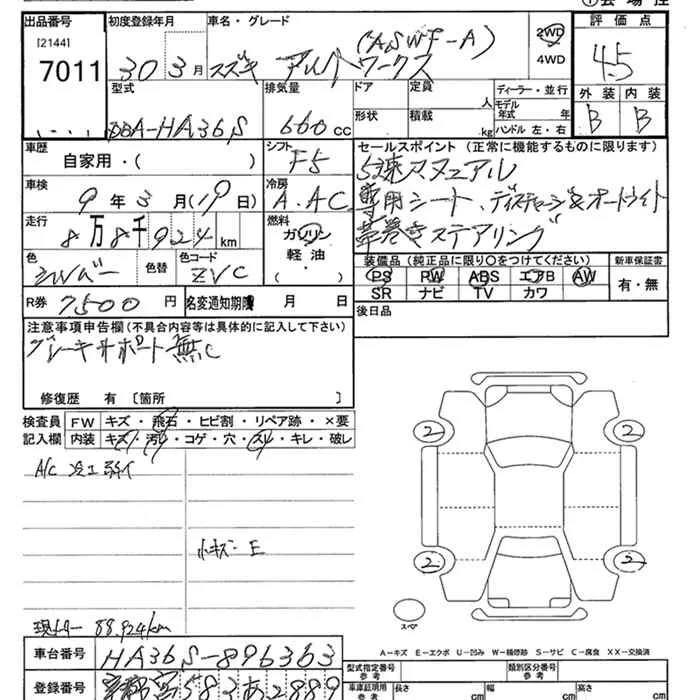 出品番号
[2144]
7011
初度登録年月
30 3月
車名・グレード
(ASWF-A)
スズキ アルト ワークス
2WD
4WD
評価点
4.5
外装 内装
B B
型式
DBA-HA36S
排気量
660cc
ドア
形状
定員
人
積載
kg
ディーラー・並行
モデル年式 年
ハンドル 左・右
車歴
自家用・( )
シフト
F5
車検
9年3月(19日)
冷房
A.AC
走行
8万8千924km
燃料
ガソリン
軽油・
( )
色
シルバー
色替
色コード
ZVC
R券 7500円
名変通知期限 月 日
セールスポイント (正常に機能するものに限ります)
5速マニュアル
専用シート、ディスチャージ&オートライト
革巻きステアリング
装備品 (純正品に限り〇をつけてください)
PS PW ABS エアB AW
SR ナビ TV カワ
新車保証書
有・無
後日品
注意事項申告欄(不具合内容等は具体的に記入して下さい)
ブレーキサポート無し
修復歴 有 〔箇所 〕
検査員記入欄
FW キズ・飛石・ヒビ割・リペア跡・×要
内装 キズ・汚れ・コゲ・穴・スレ・キレ・破レ
A/C 冷え弱い
小キズ・E
現メーター 88.924km
2 2
2 2
スペア
A−キズ E−エクボ U−凹み W−補修跡 S−サビ C−腐食 XX−交換済
車台番号 HA36S-896363
登録番号 583あ2889
型式指定番号
類別区分番号
車庫証明用参考
長さ cm
幅 cm
高さ cm